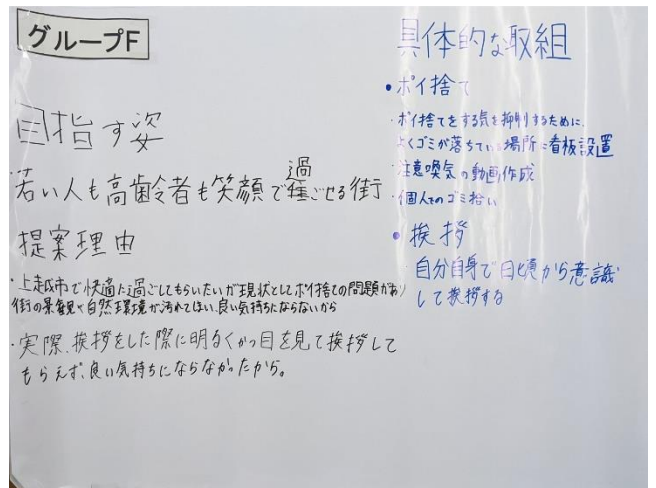 グループF
目指す姿
若い人も高齢者も笑顔で過ごせる街
提案理由
・上越市で快適に過ごしてもらいたいが現状としてポイ捨ての問題があり
街の景観や自然環境が汚れてしまい、良い気持ちにならないから
・実際、挨拶をした際に明るくかつ目を見て挨拶して
もらえず、良い気持ちにならなかったから。
具体的な取組
・ポイ捨て
・ポイ捨てをする気を抑制するために、
よくゴミが落ちている場所に看板設置
・注意喚起の動画作成
・個人でのゴミ拾い
・挨拶
自分自身で日頃から意識
して挨拶する